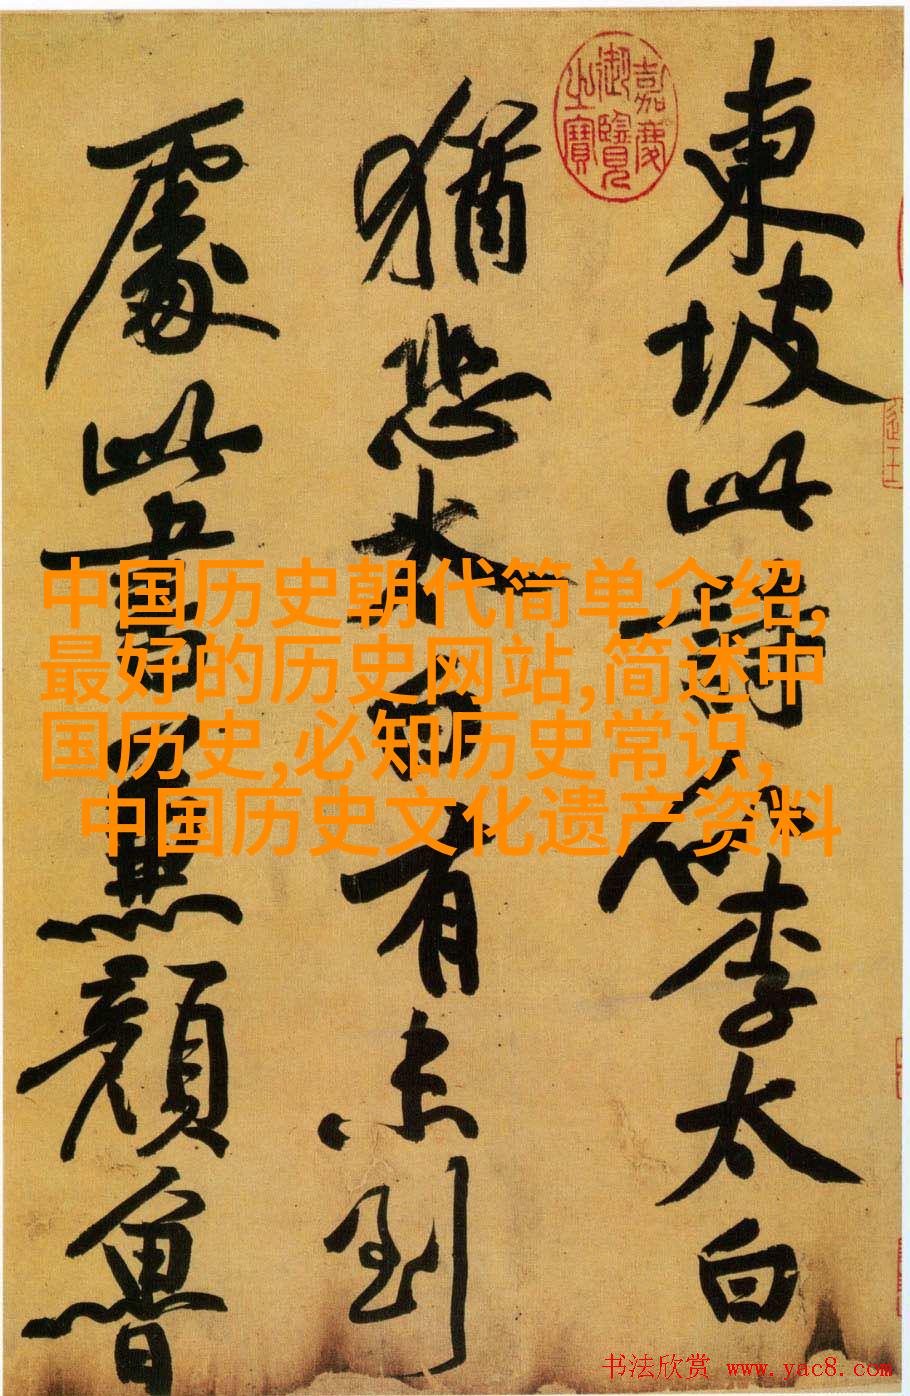 東坡此詩似李太白
猶恐太白有未到
處此書兼顏魯
嘉慶
御覽
之寶
中国历史朝代简单介绍,
最好的历史网站,简述中
国历史,必知历史常识,
中国历史文化遗产资料
书法欣赏 www.yac8.com